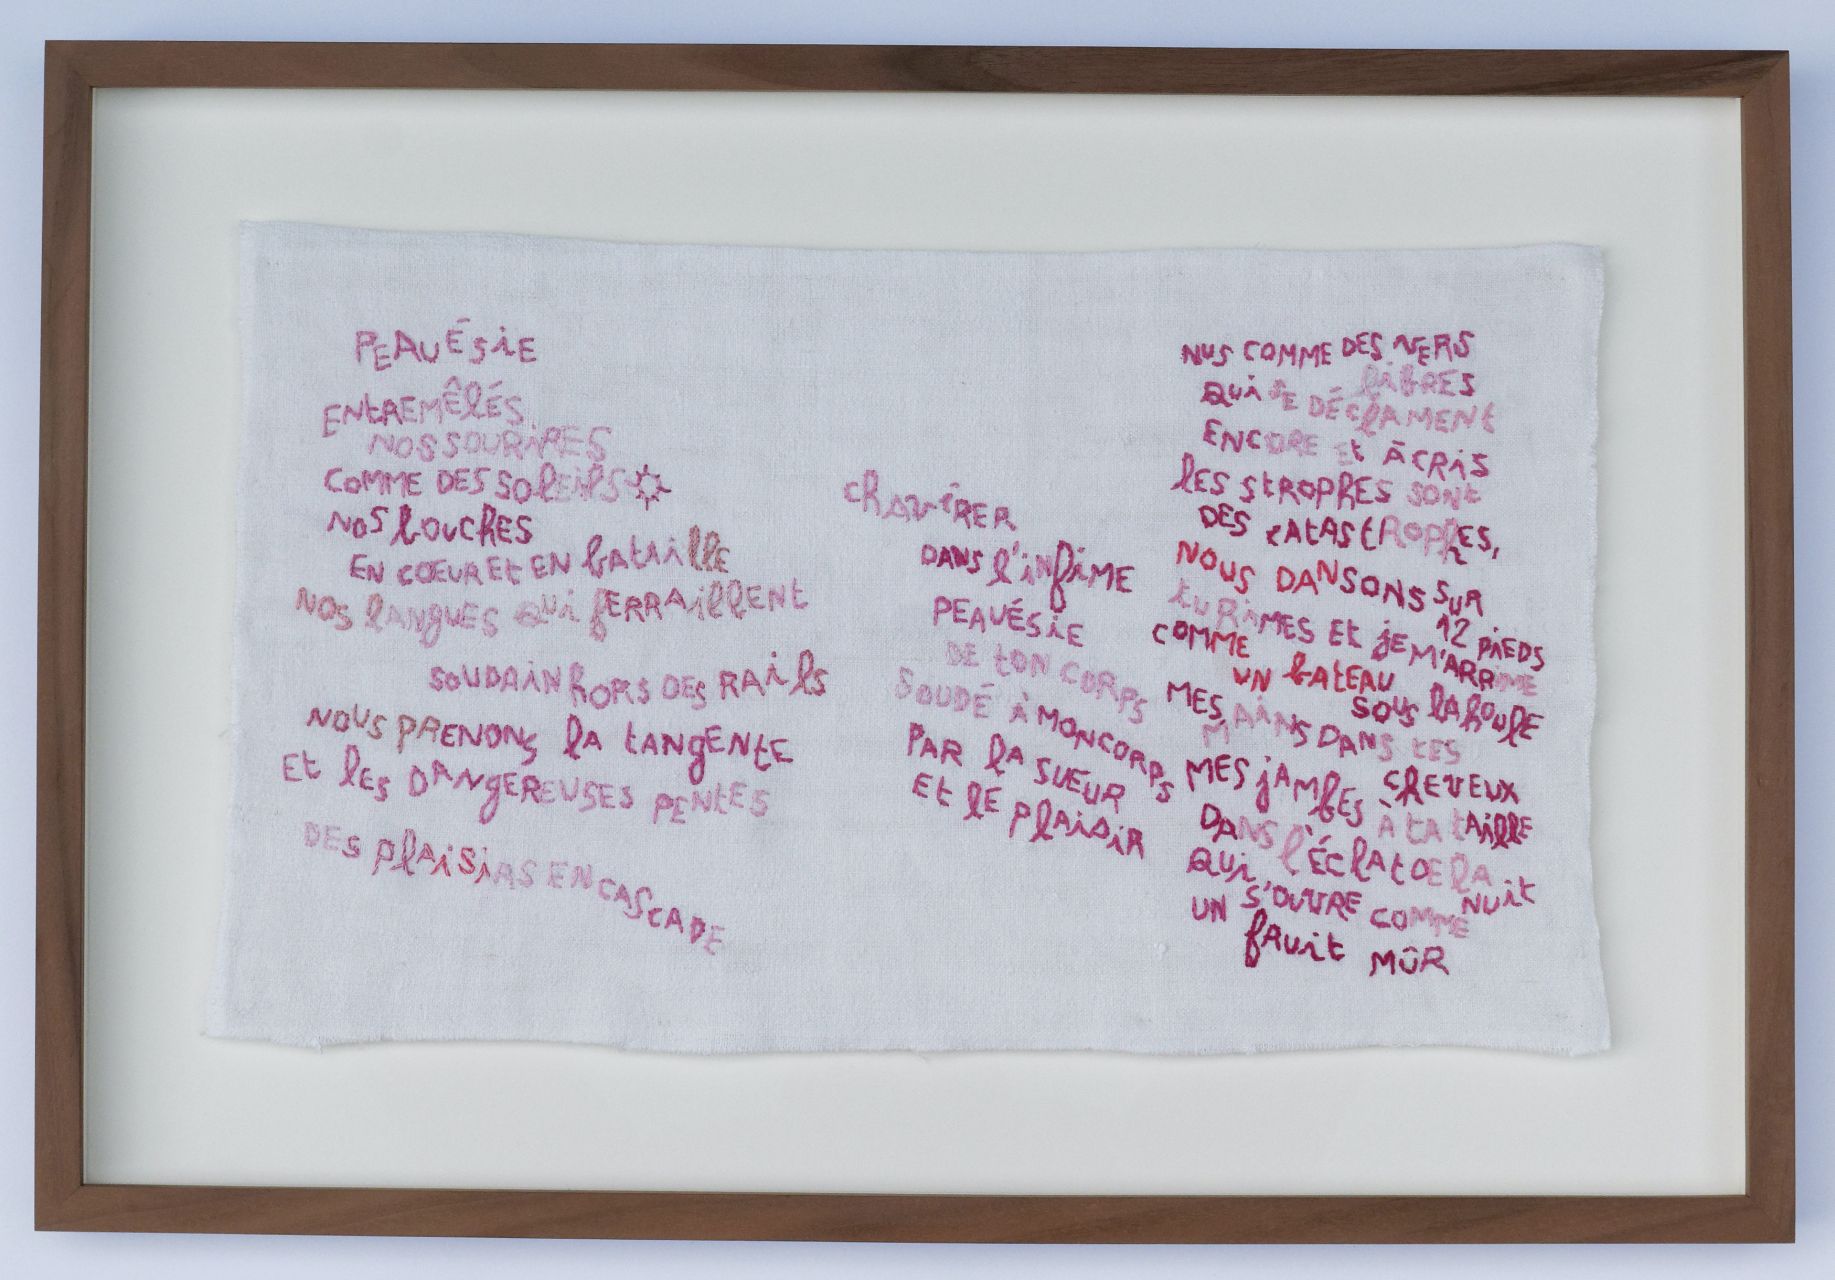 PEAUÉSiE
ENtREMÊlÉS
NOS SOURiRES
COMME DES SOlEilS
NOS bOUChES
EN CŒUR Et EN bAtAillE
NOS lANgUES QUi fERRAillENt
SOUDAiN hORS DES RAilS
NOUS PRENONS lA tANgENtE
Et lES DANgEREUSES PENtES
DES plAiSiRS EN CASCADE
ChAViRER
DANS l'iNfiME
PEAUÉSiE
DE tON CORPS
SOUDÉ À MON CORPS
PAR lA SUEUR
Et lE plAiSiR
NUS COMME DES VERS
liBRES
QUi SE DÉClAMENt
ENCORE Et À CRiS
lES StROPhES SONt
DES CAtAStROPhES,
NOUS DANSONS SUR
12 PiEDS
tU RiMES Et jE M'ARRiME
COMME
UN bAtEAU
SOUS lA hOUlE
MES MAiNS DANS tES
ChEVEUX
MES jAMbES À tA tAillE
DANS l'ÉClAt DE lA
NUit
QUi S'OUVRE COMME
UN fRUit MÛR